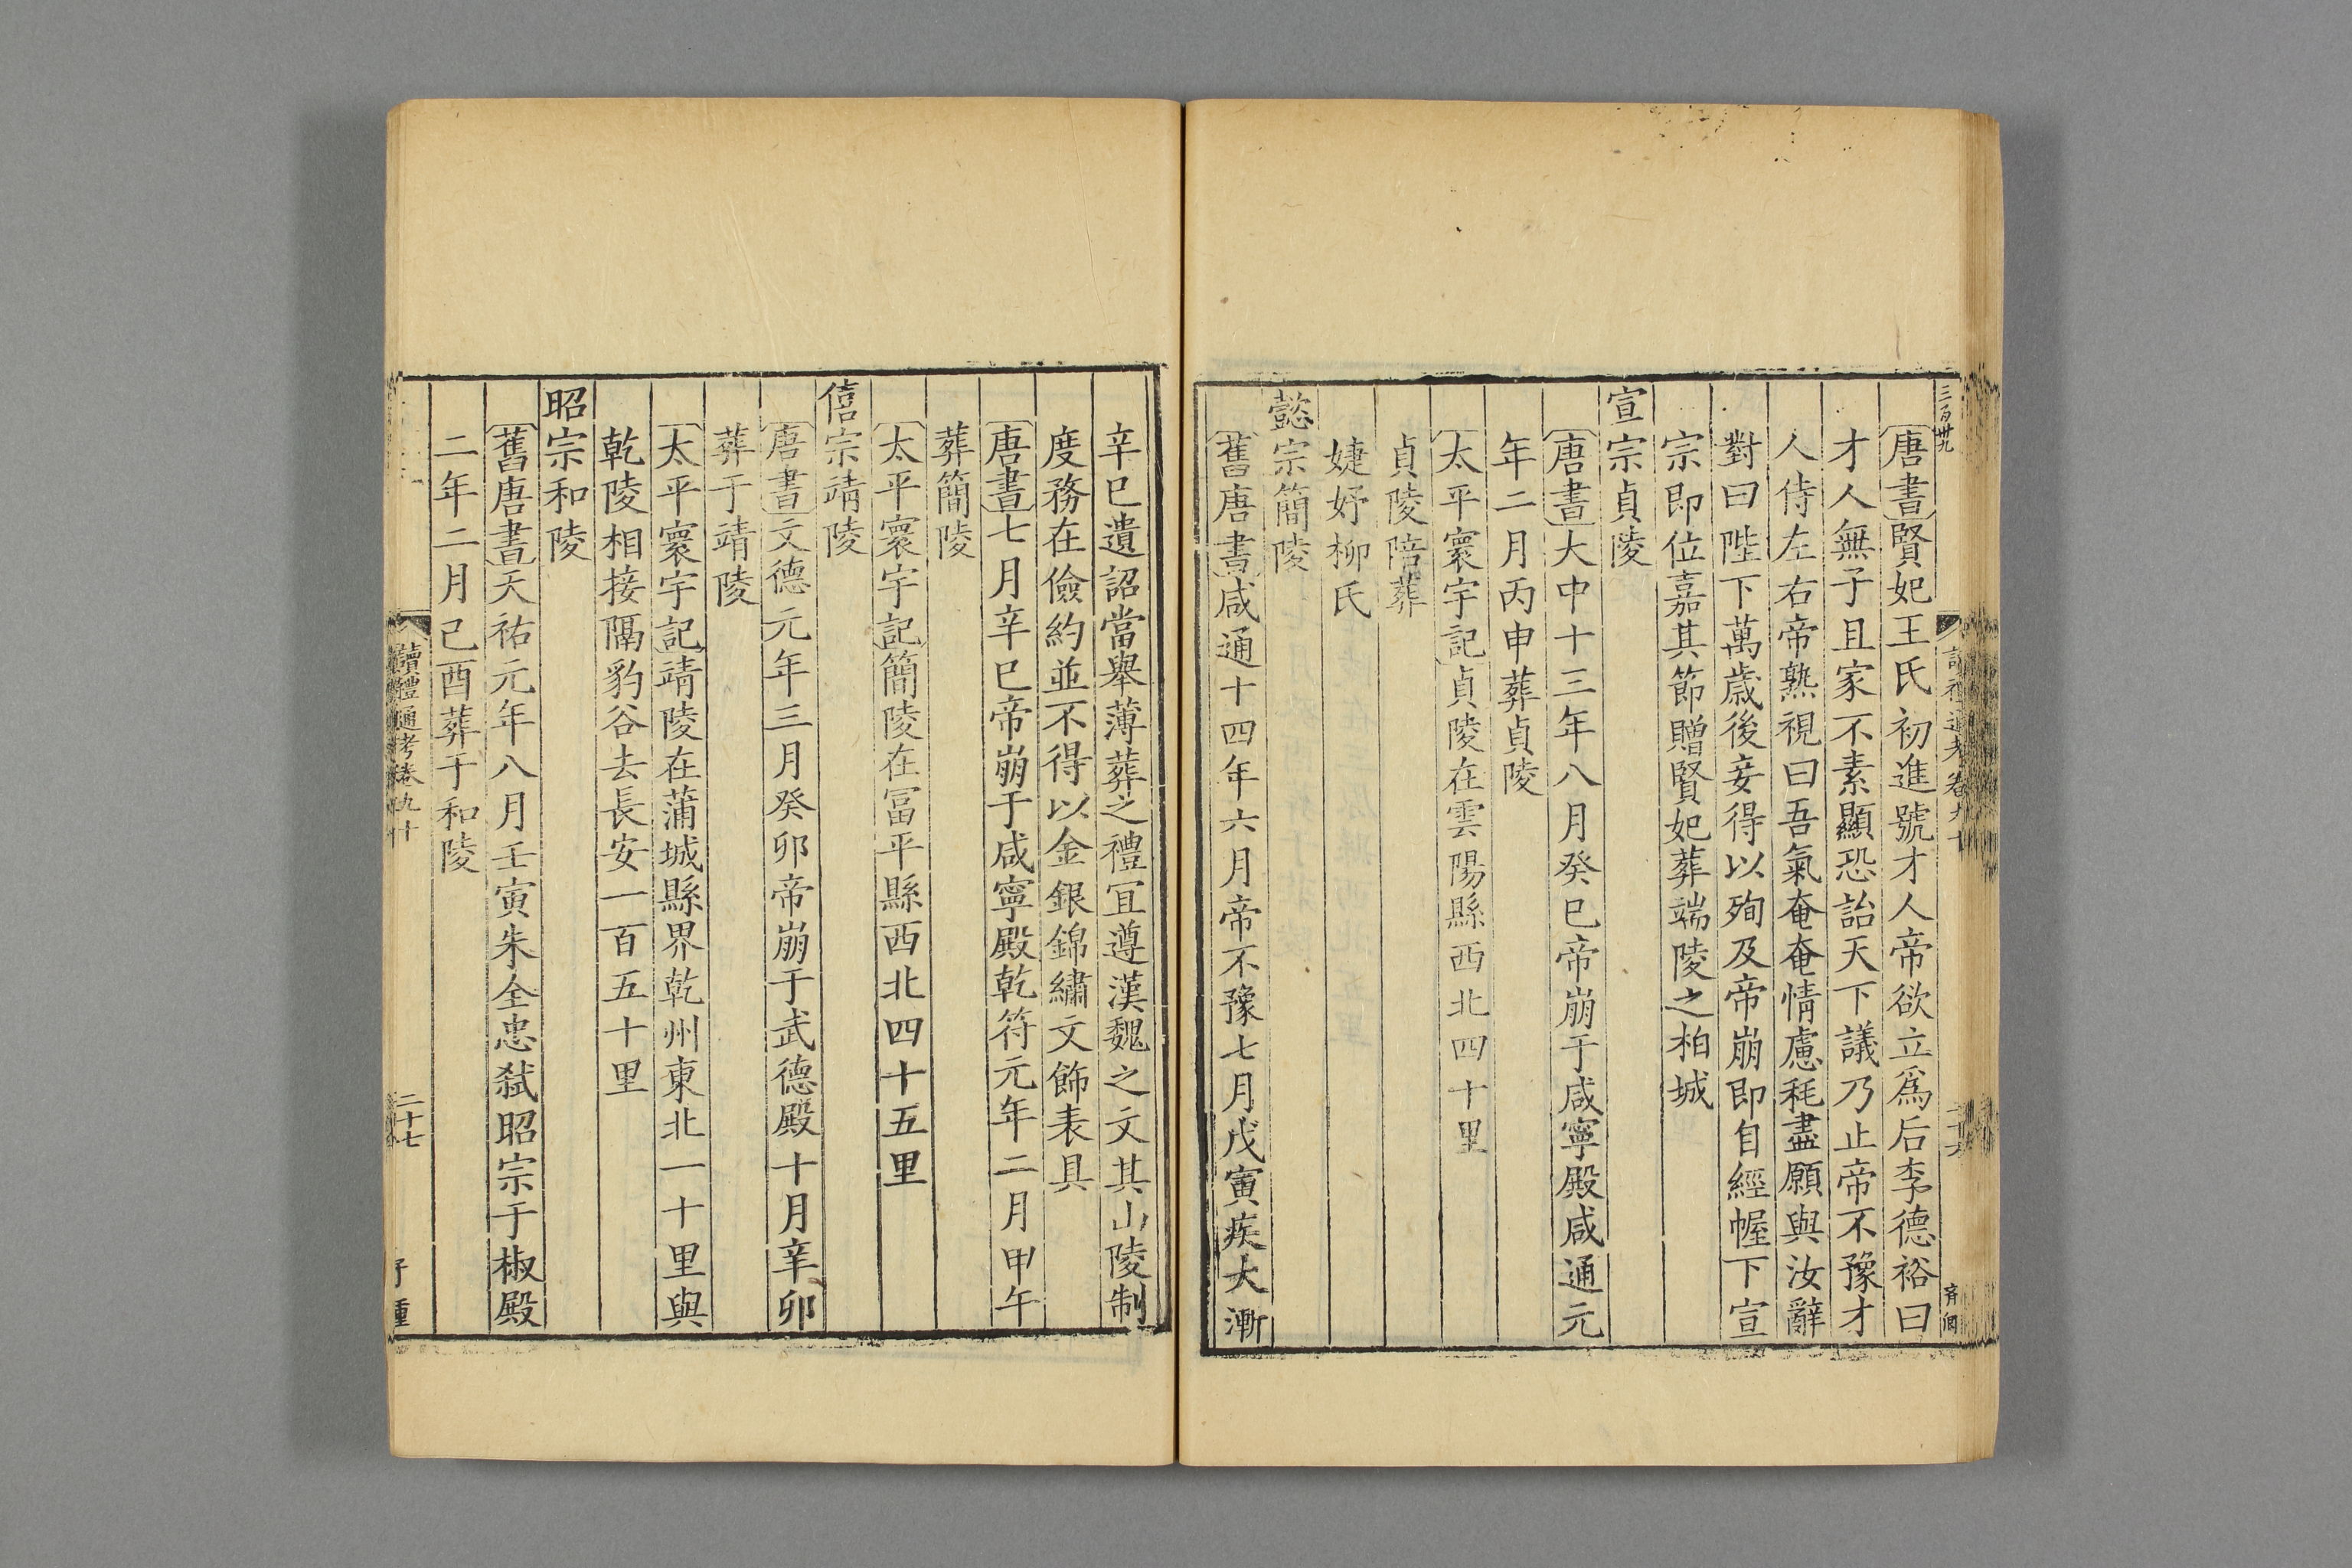 三百卅九
唐書賢妃王氏初進號才人帝欲立爲后李德裕曰
才人無子且家不素顯恐詒天下議乃止帝不豫才
人侍左右帝熟視曰吾氣奄奄情慮秏盡願與汝辭
對曰陛下萬歲後妾得以殉及帝崩即自經幄下宣
宗即位嘉其節贈賢妃葬端陵之柏城
宣宗貞陵
唐書大中十三年八月癸巳帝崩于咸寧殿咸通元
年二月丙申葬貞陵
太平寰宇記貞陵在雲陽縣西北四十里
貞陵陪葬
婕妤柳氏
懿宗簡陵
舊唐書咸通十四年六月帝不豫七月戊寅疾大漸
辛巳遺詔當舉薄葬之禮宜遵漢魏之文其山陵制
度務在儉約並不得以金銀錦繡文飾表具
唐書七月辛巳帝崩于咸寧殿乾符元年二月甲午
葬簡陵
太平寰宇記簡陵在冨平縣西北四十五里
僖宗靖陵
唐書文德元年三月癸卯帝崩于武德殿十月辛卯
葬于靖陵
太平寰宇記靖陵在蒲城縣界乾州東北一十里與
乾陵相接隔豹谷去長安一百五十里
昭宗和陵
舊唐書天祐元年八月壬寅朱全忠弑昭宗于椒殿
二年二月己酉葬于和陵
讀禮通考卷九十
二十七